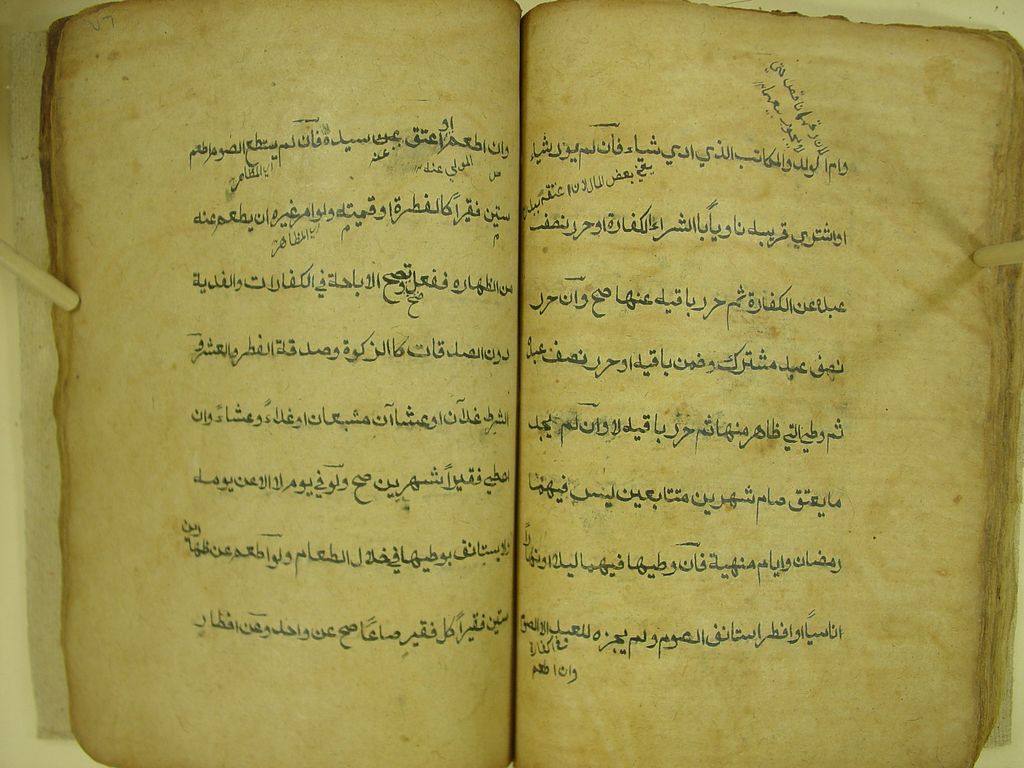 وام الولد والمكاتب الذي ادي شياء فآن لم يؤد شياء
او اشتري قريبه ناوياً بالشراء الكفارة او حرر نصف
عبده عن الكفارة ثم حرر باقيه عنها صح وآن حرر
نصف عبد مشترك وضمن باقيه او حرر نصف عبده
ثم وطي التي ظاهر منها ثم حرر باقيه لا وآن لم يجد
ما يعتق صام شهرين متتابعين ليس فيهما
رمضان وايام منهية فآن وطيها فيهما ليلا او نهاراً
اناسياً او افطر استانف الصوم ولم يجزه للعبد الا الصوم
في كفارة
وان اطعم
وان اطعم او اعتق عن سيده فآن لم يستطع الصوم اطعم
المولي عنه
اي المظاهر
ستين فقيراً كالفطرة او قيمته ولو امر غيره ان يطعم عنه
اي المظاهر
من الظهاره ففعل وتصح الاباحة في الكفارات والفدية
صح
دون الصدقات كالزكوة وصدقة الفطر والعشر و
الشرط غدآن او عشاآن مشبعان او غداءً وعشاءً وان
اعطي فقيراً شهرين صح ولو في يوم لا الا عن يومه
ولا يستانف بوطيها في خلال الطعام ولو اطعم عن ظهارين
ستين فقيراً كل فقيرٍ صاعًا صح عن واحد وعن افطارٍ